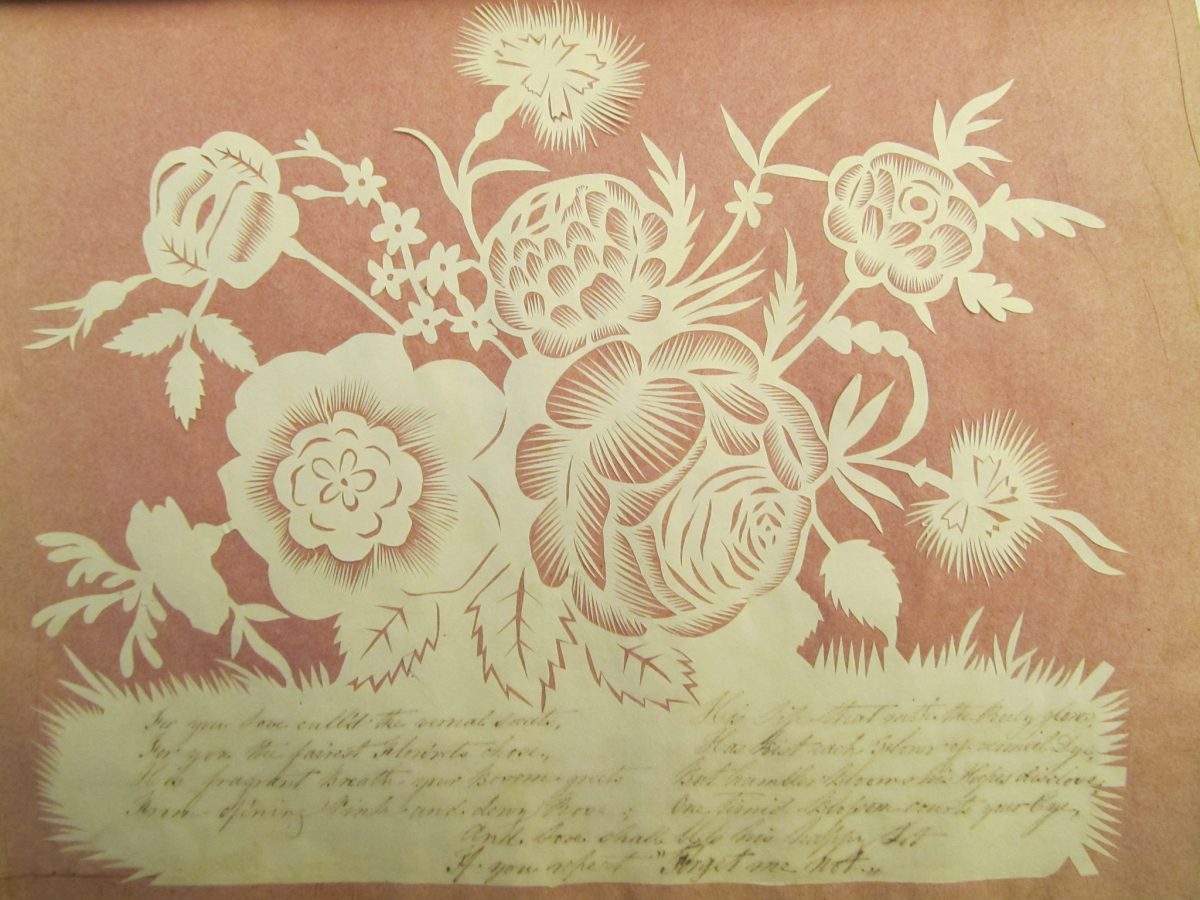 For you Love cull'd the vernal sweets,
For you the fairest Flow'rets chose,
His fragrant Breath your Bosom greets
From op'ning Pink and downy Rose;
His Lip that with the Ruby glows
Has Kist each Flower of vermil Dye,
But humbler Blooms his Hopes disclose,
One timid Blossom courts your Eye,
And Love shall bless his happy lot
If you repeat "Forget me Not"